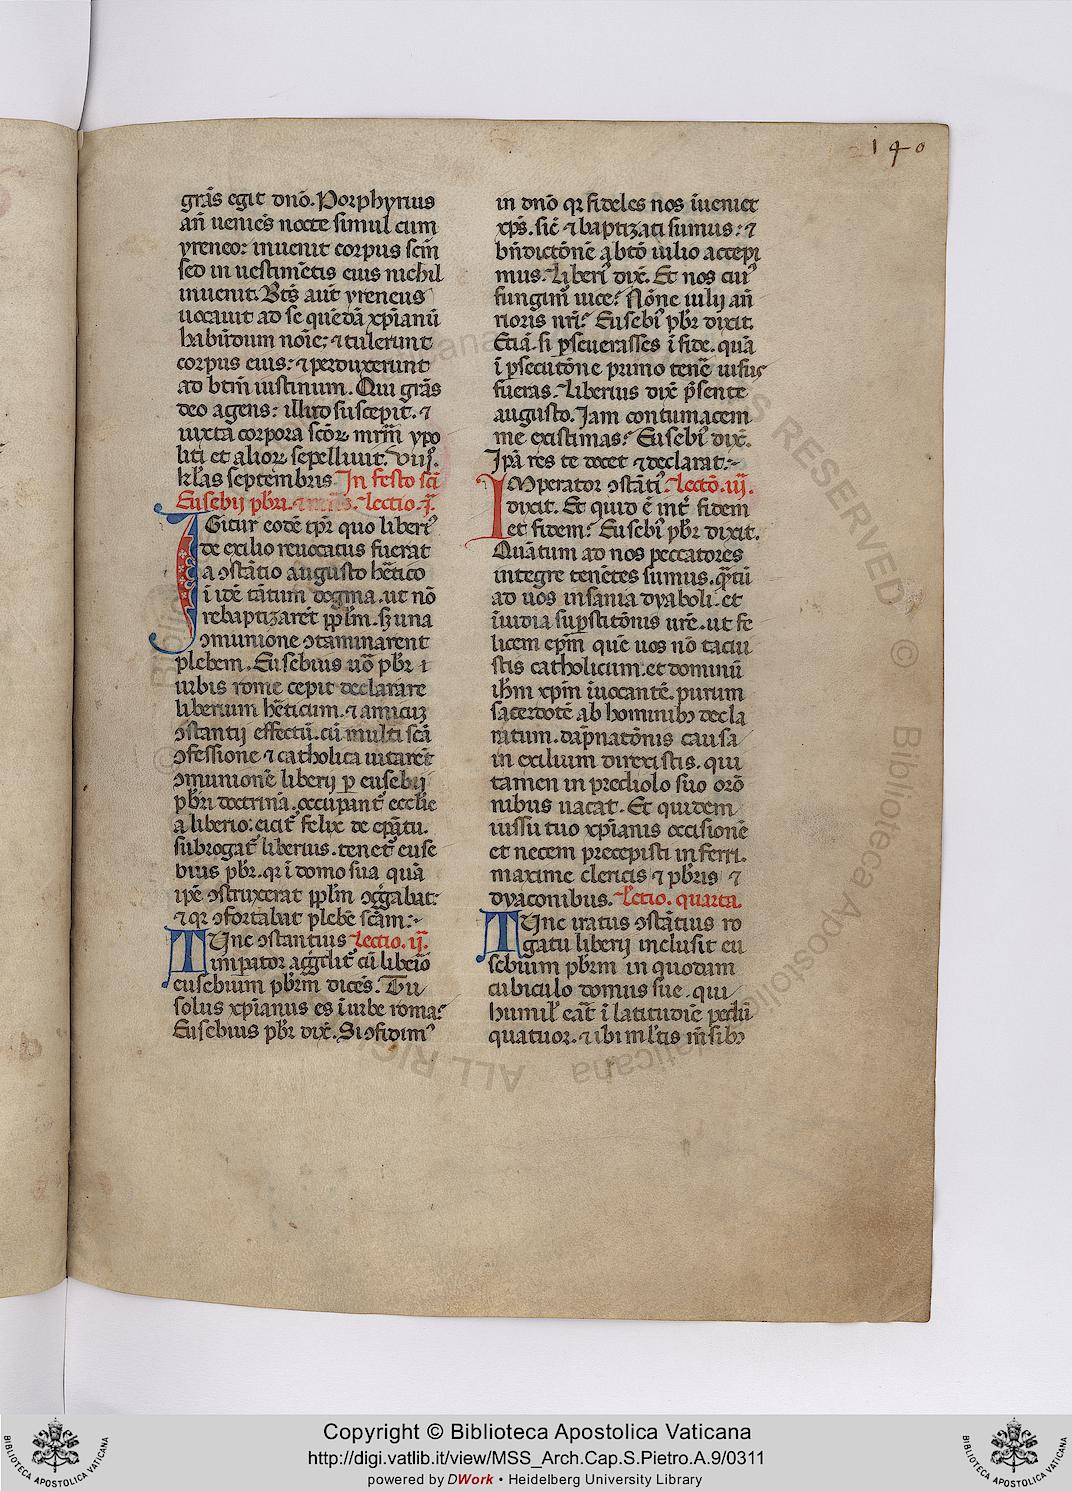 140
grãs egit dnõ. Porphyrius
añ ueniẽs nocte simul cum
yreneo: inuenit corpus scĩ
sed in uestimẽtis eius nichil
inuenit. Bts̃ aut̃ yreneus
uocauit ad se quẽdã xp̃ianũ
babiridum noĩe; ⁊ tulerunt
corpus eius: ⁊ perduxerunt
ad btm̃ iustinum. Qui grãs
deo agens: illud suscepit. ⁊
iuxta corpora scõꝝ mrm̃ ypo
liti et alioꝝ sepelliuit. viiỹ.
kl̃as septembris. In festo scĩ
Eusebij pb̃ri. ⁊ Lectio .j̃.
IGitur eodẽ tp̃r quo liberi᾽
de exilio reuocatus fuerat
a ꝯstãtio augusto hẽtico
ĩ idẽ tãtum dogma. ut nõ
rebaptizarẽt pplm̃. sꝫ una
ꝯmunione ꝯtaminarent
plebem. Eusebius uõ pb̃r ĩ
urbis rome cepit declarare
liberium hẽticum. ⁊ amicuꝫ
ꝯstantij effectũ. cũ multi scã
ꝯfessione ⁊ catholica uitarẽt
ꝯmunionẽ liberij p̱ eusebij
pb̃ri doctrinã. occupant᾽ ecclẽ
a liberio: eicit᾽ felix de epãtu.
subrogat᾽ liberius. tenet᾽ euse
bius pb̃r. qr ĩ domo sua quã
ipẽ ꝯstruxerat pplm̃ ꝯgg̃abat
⁊ qr ꝯfortabat plebẽ scãm:
TUnc ꝯstantius Lectio .ij̃.
imp̱ator agg̃dit᾽ cũ liberio
eusebium pb̃rm̃ dicẽs. Tu
solus xp̃ianus es ĩ urbe roma?
Eusebius pb̃r dix̃. Si ꝯfidim᾽
in dnõ qr fideles nos ĩueniet
xp̃s. sic̃ ⁊ baptizati sumus: ⁊
bñdictõnẽ a btõ iulio accepi
mus. Liberi᾽ dix̃. Et nos cui᾽
fungim᾽ uice? Nõne iulij añ
rioris nri᾽? Eusebi᾽ pb̃r dixit.
Etiã. si p̱seuerasses ĩ fide. quã
ĩ p̱secutõne primo tenẽ uisus
fueras. Liberius dix̃ p̃sente
augusto. Jam contumacem
me existimas? Eusebi᾽ dix̃.
Ipã res te docet ⁊ declarat:
IMperator ꝯstãti᾽. Lectõ .iij̃.
dixit. Et quid ẽ int᾽ fidem
et fidem? Eusebi᾽ pb̃r dixit.
Quãtum ad nos peccatores
integre tenẽtes sumus. q̃tũ
ad uos insania dyaboli. et
ĩuidia sup̱stitõnis ure᾽. ut fe
licem ep̃m quẽ uos nõ taciu
stis catholicum. et dominũ
ihm̃ xp̃m ĩuocantẽ. purum
sacerdotẽ ab hominibꝫ decla
ratum. dãpnatõnis causa
in exilium direxistis. qui
tamen in prediolo suo orõ
nibus uacat. Et quidem
iussu tuo xp̃ianis occisionẽ
et necem precepisti inferri.
maxime clericis ⁊ pb̃ris ⁊
dyaconibus. Lc̃tio. quarta.
TUnc iratus ꝯstãtius ro
gatu liberij inclusit eu
sebium pb̃rm in quodam
cubiculo domus sue. qui
humil᾽ erat᾽ ĩ latitudiẽ pedũ
quatuor. ⁊ ibi ml᾽tis m̃sibꝫ
Copyright © Biblioteca Apostolica Vaticana
http://digi.vatlib.it/view/MSS_Arch.Cap.S.Pietro.A.9/0311
powered by DWork • Heidelberg University Library
BIBLIOTECA APOSTOLICA VATICANA
BIBLIOTECA APOSTOLICA VATICANA
© Biblioteca Apostolica Vaticana ALL RIGHTS RESERVED